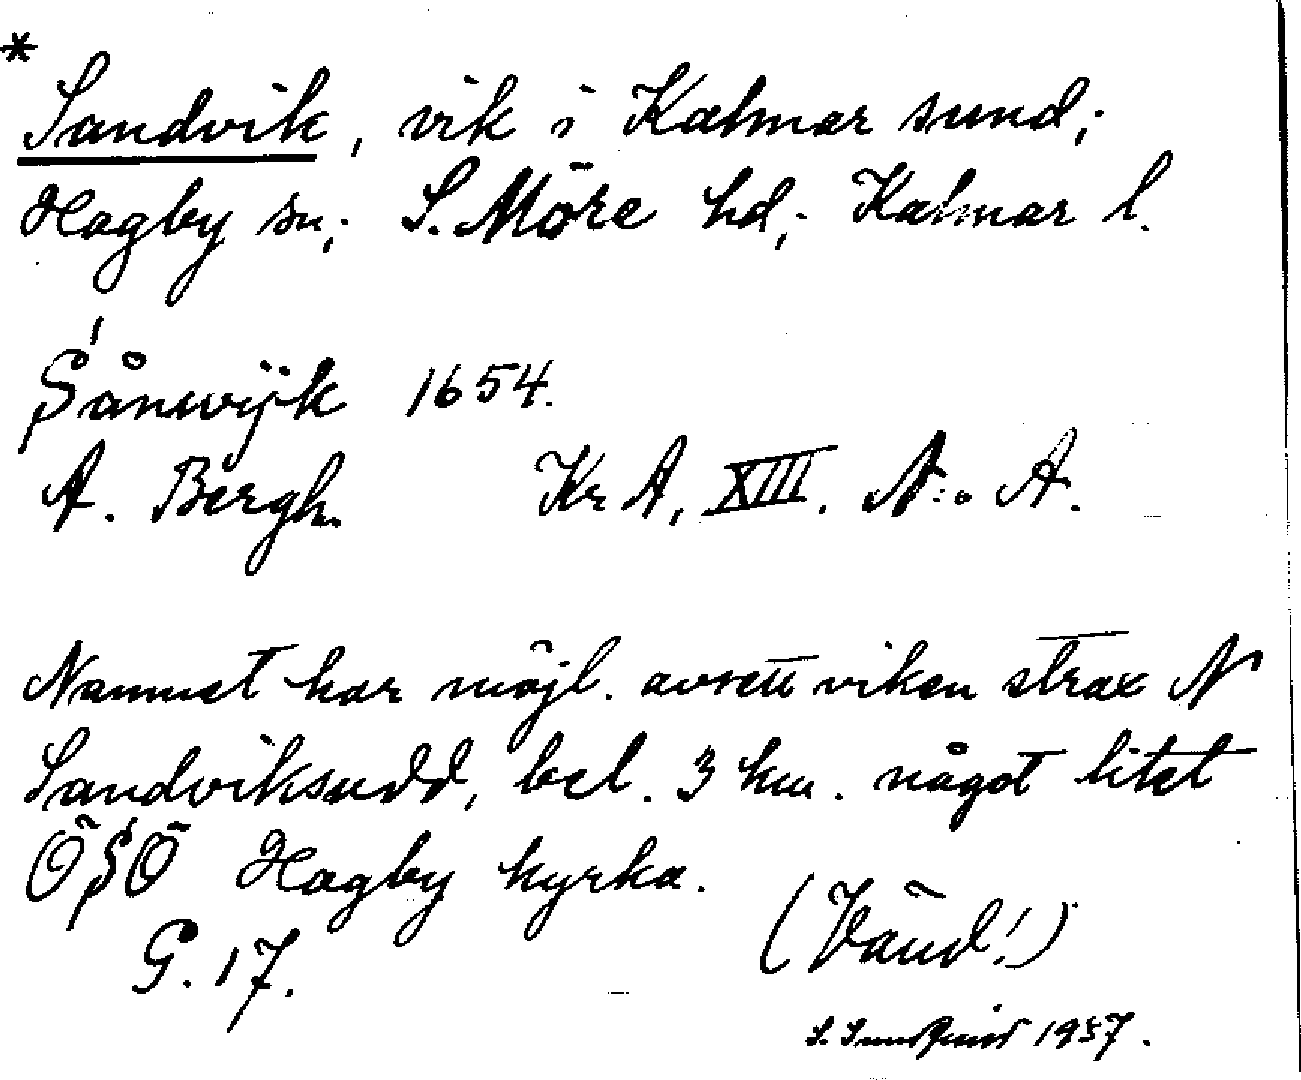 *
Sandvik, vik i Kalmar sund;
Hagby sn; S. Möre hd; Kalmar l.
Sånwijk 1654.
A. Bergh. Kr A, XIII. N:o A.
Namnet har möjl. avsett viken strax N
Sandviksudd, bel. 3 km. något litet
ÖSÖ Hagby kyrka.
G. 17. (Vänd!)
1957.